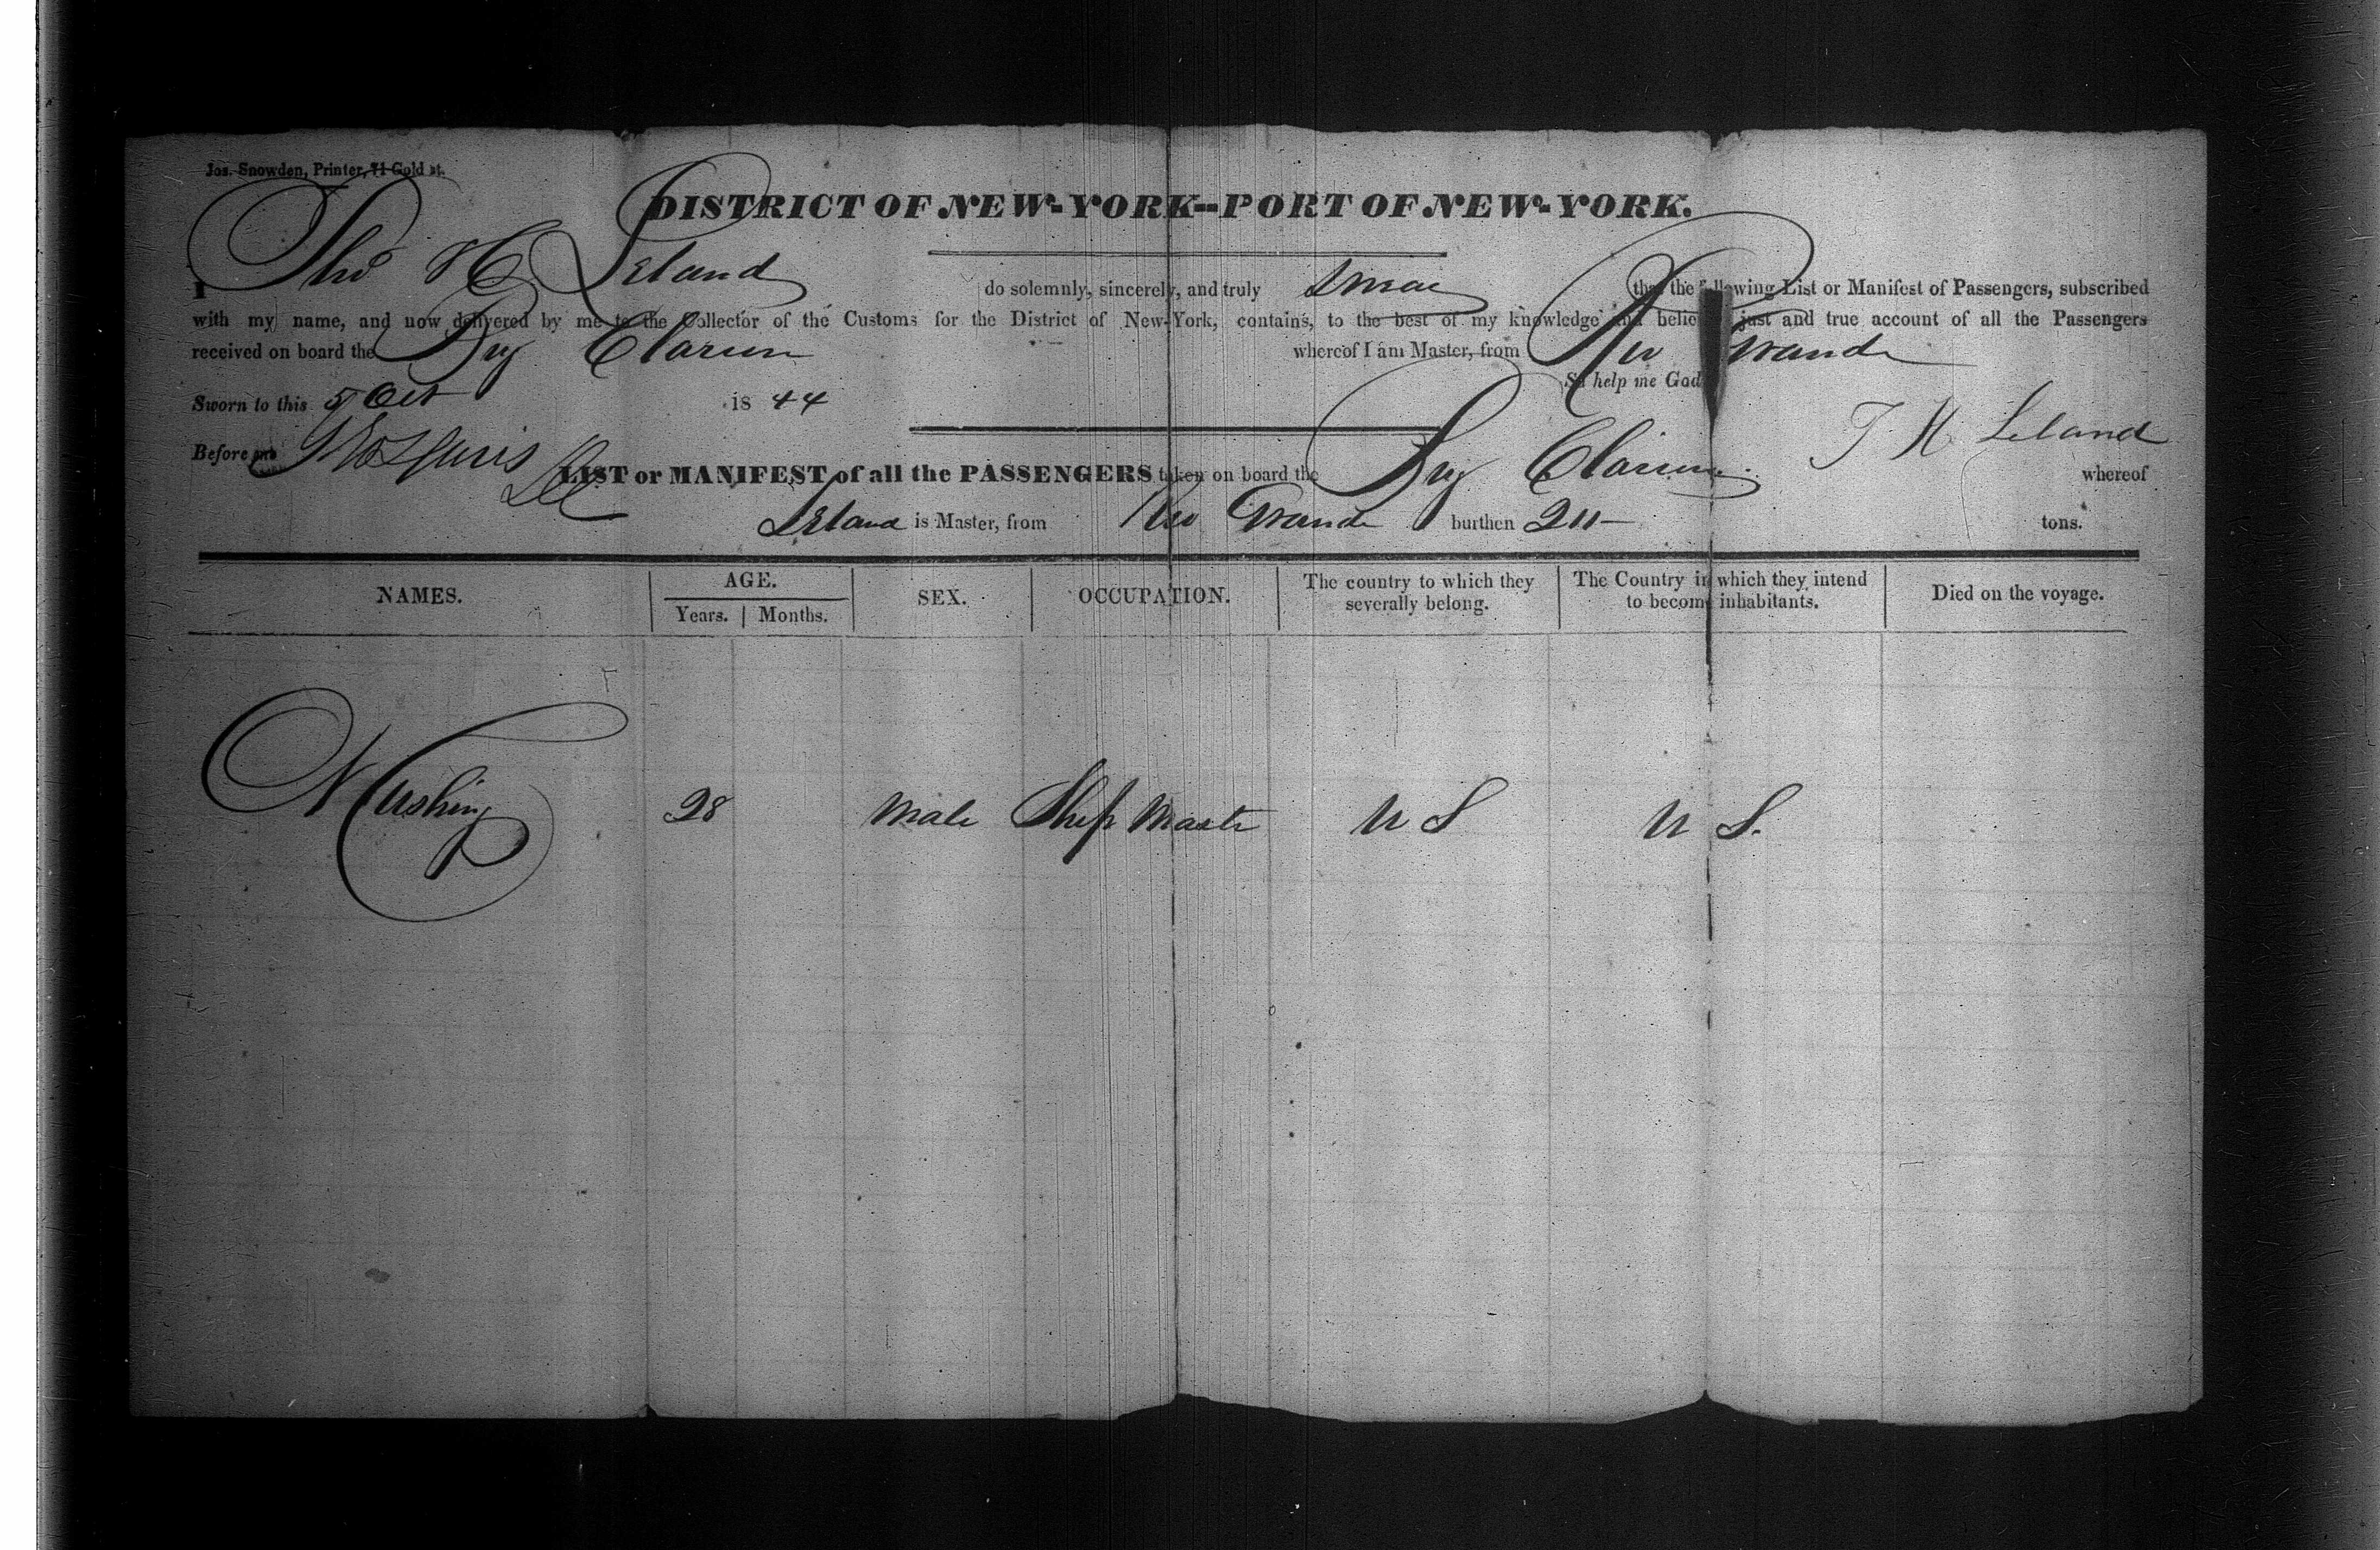 Jos. Snowden, Printer, 71 Gold st.
DISTRICT OF NEW-YORK--PORT OF NEW-YORK.
I Thos H Leland do solemnly, sincerely, and truly swear that the following List or Manifest of Passengers, subscribed
with my name, and now delivered by me to the Collector of the Customs for the District of New-York, contains, to the best of my knowledge and belief just and true account of all the Passengers
received on board the Brig Clarion whereof I am Master, from Rio Grande
So help me God
Sworn to this 5 Oct 18 44
T. H. Leland
Before
LIST or MANIFEST of all the PASSENGERS taken on board the Brig Clarion whereof
Leland is Master, from Rio Grande burthen 211 tons.
NAMES. AGE. SEX. OCCUPATION. The country to which they severally belong. The Country in which they intend to become inhabitants. Died on the voyage.
Years. Months.
N Cushing 28 Male Ship Master U S U S.